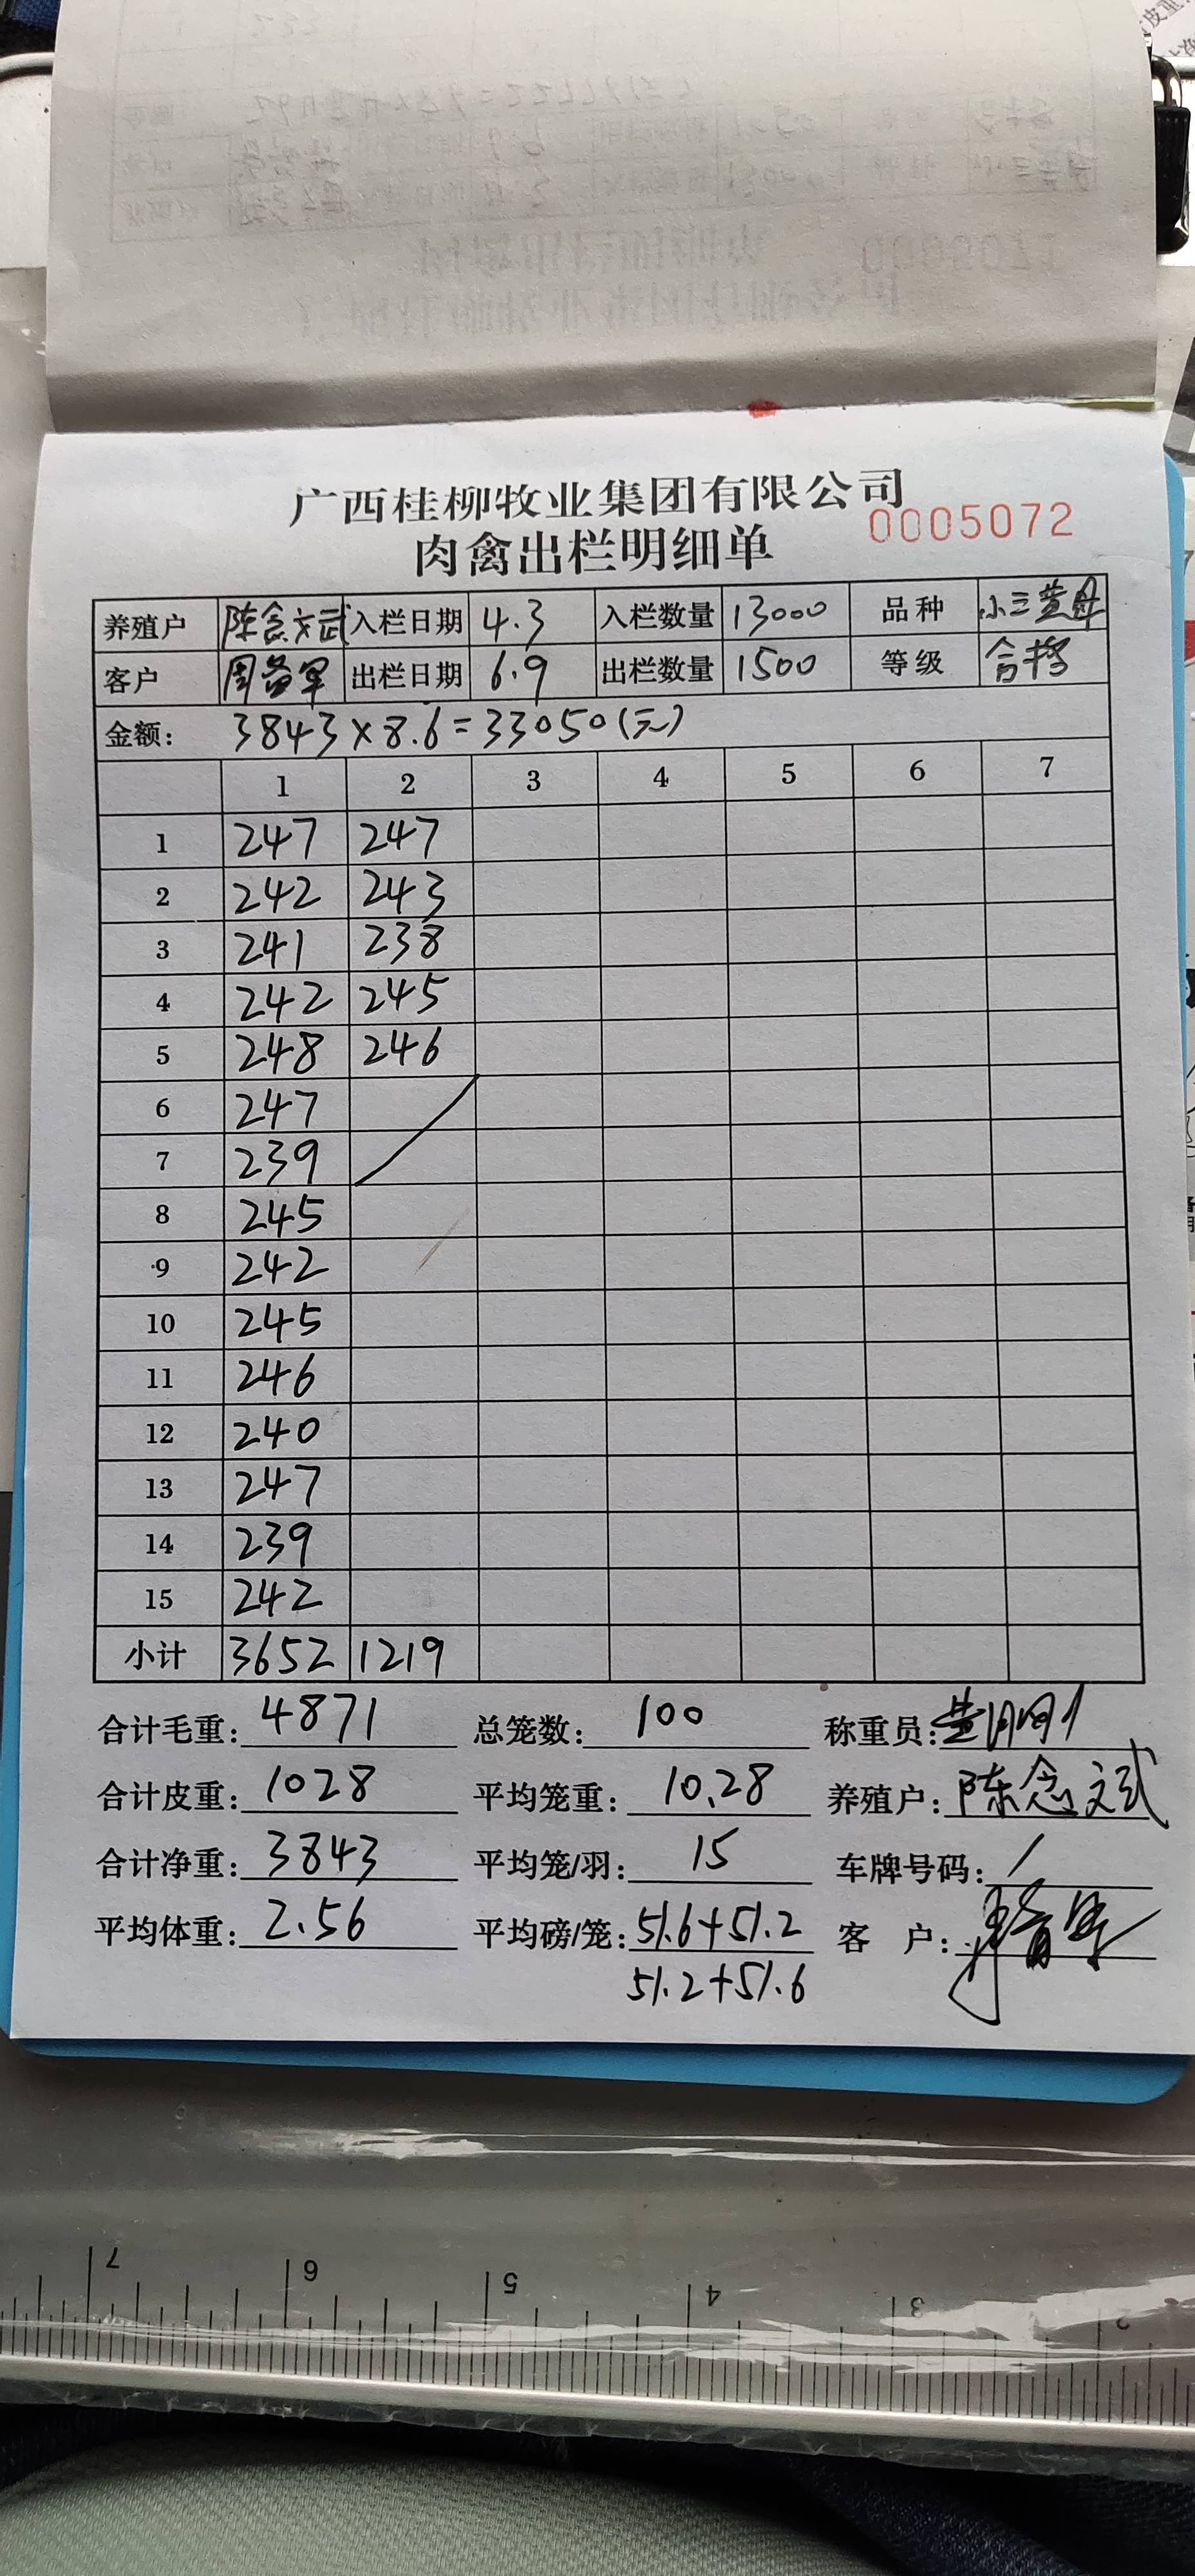 广西桂柳牧业集团有限公司
肉禽出栏明细单 0005072
养殖户 陈念文武 入栏日期 4.3 入栏数量 13000 品种 小三黄母
客户 出栏日期 6.9 出栏数量 1500 等级 合格
金额: 3843×8.6=33050(元)
1 2 3 4 5 6 7
1 247 247
2 242 243
3 241 238
4 242 245
5 248 246
6 247
7 239
8 245
9 242
10 245
11 246
12 240
13 247
14 239
15 242
小计 3652 1219
合计毛重: 4871 总笼数: 100 称重员:
合计皮重: 1028 平均笼重: 10.28 养殖户: 陈念文武
合计净重: 3843 平均笼/羽: 15 车牌号码: /
平均体重: 2.56 平均磅/笼: 51.6+51.2 客 户:
51.2+51.6
7 6 5 4 3 2